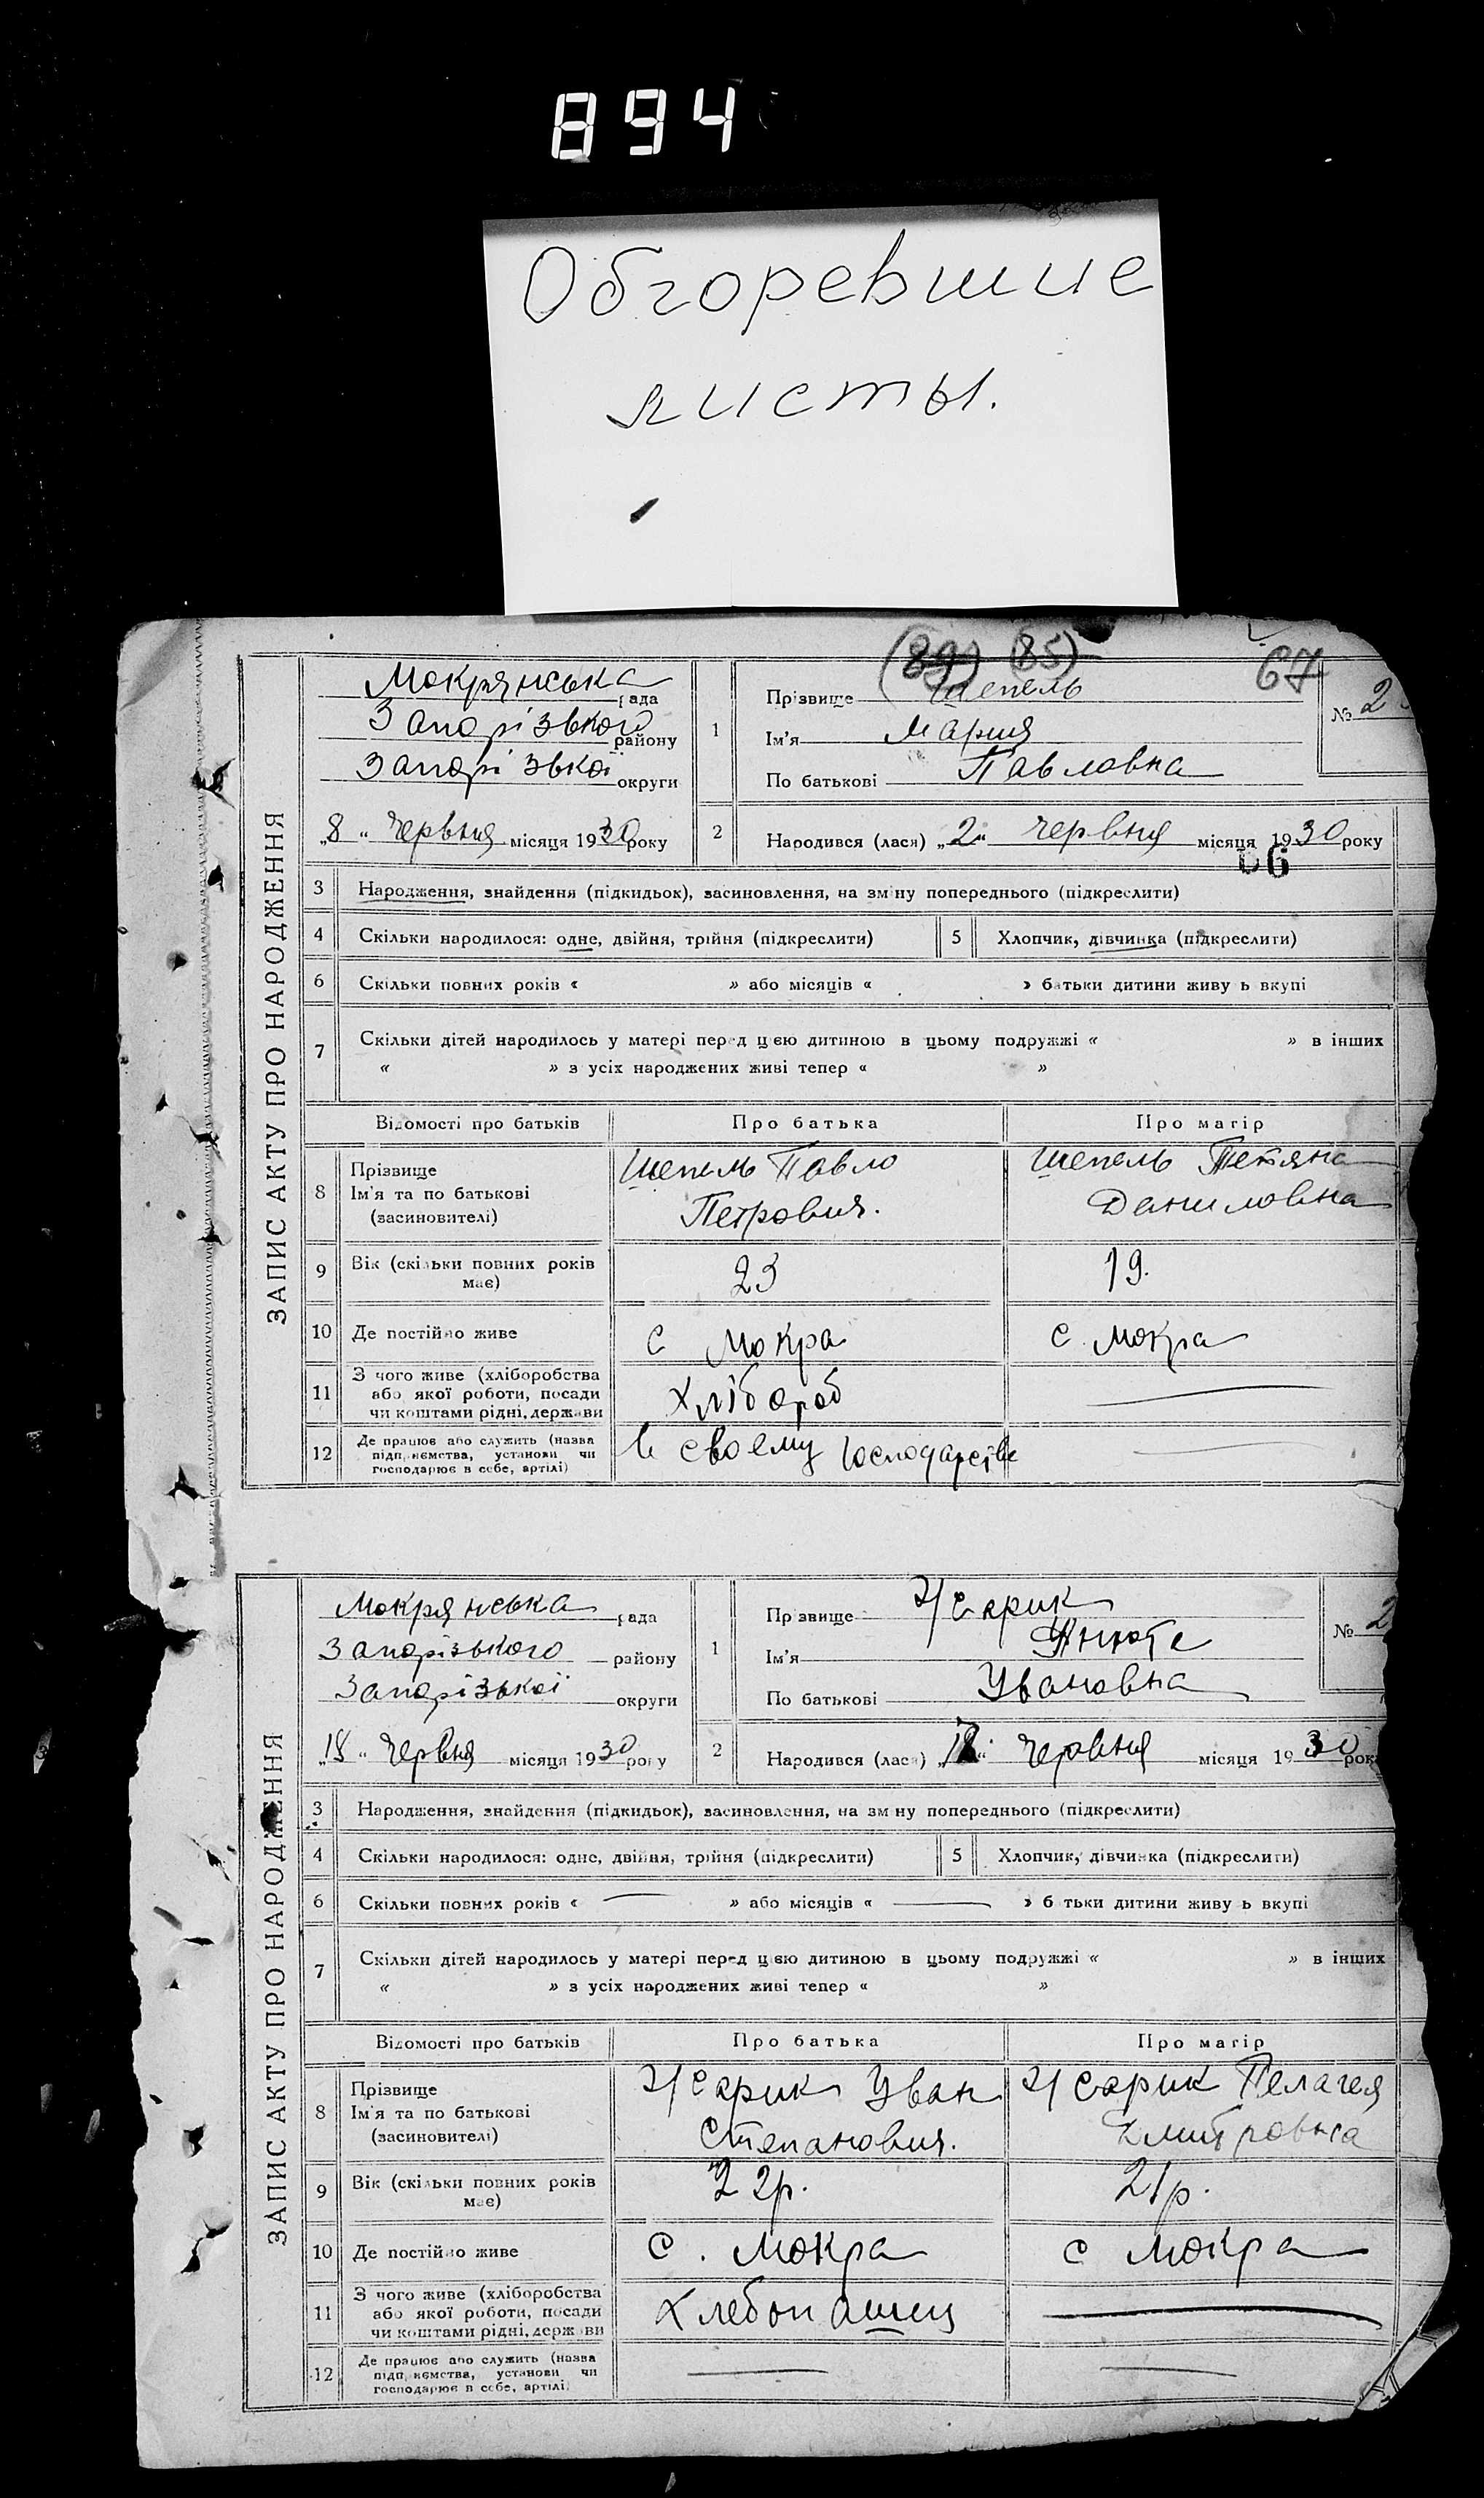 894
Обгоревшие
листы.
(89) (85)
67
ЗАПИС АКТУ ПРО НАРОДЖЕННЯ
Мокрянська рада
Запорізького району
Запорізької округи
„8“ Червня місяця 1930 року
1
Прізвище Шепель
Ім'я Мария
По батькові Павловна
№ 2
2
Народився (лася) „2“ червня місяця 1930 року
66
3 Народження, знайдення (підкидьок), васиновлення, на зміну попереднього (підкреслити)
4 Скільки народилося: одне, двійня, трійня (підкреслити)
5 Хлопчик, дівчинка (підкреслити)
6 Скільки повних років « » або місяців « » батьки дитини живуть вкупі
7 Скільки дітей народилось у матері перед цією дитиною в цьому подружжі « » в інших
« » з усіх народжених живі тепер « »
Відомості про батьків Про батька Про матір
8 Прізвище
Ім'я та по батькові
(засиновителі)
Шепель Павло
Петрович.
Шепель Тетяна
Даниловна
9 Вік (скільки повних років
має)
23
19.
10 Де постійно живе
с Мокра
с. Мокра
11 З чого живе (хліборобства
або якої роботи, посади
чи коштами рідні, держави
Хлібороб
12 Де працює або служить (назва
підприємства, установи чи
господарює в себе, артілі)
в своему господарстве
ЗАПИС АКТУ ПРО НАРОДЖЕННЯ
Мокрянська рада
Запорізького району
Запорізької округи
„18“ Червня місяця 1930 року
1
Прізвище
Ім'я Анюта
По батькові Увановна
№ 2
2
Народився (лася) червня місяця 1930 року
3 Народження, знайдення (підкидьок), васиновлення, на зміну попереднього (підкреслити)
4 Скільки народилося: одне, двійня, трійня (підкреслити)
5 Хлопчик, дівчинка (підкреслити)
6 Скільки повних років « — » або місяців « — » батьки дитини живуть вкупі
7 Скільки дітей народилось у матері перед цією дитиною в цьому подружжі « » в інших
« » з усіх народжених живі тепер « »
Відомості про батьків Про батька Про матір
8 Прізвище
Ім'я та по батькові
(засиновителі)
Уван
Степанович.
Пелагея
Дмитровна
9 Вік (скільки повних років
має)
22р.
21р.
10 Де постійно живе
с. Мокра
с Мокра
11 З чого живе (хліборобства
або якої роботи, посади
чи коштами рідні, держави
Хлебопашец
12 Де працює або служить (назва
підприємства, установи чи
господарює в себе, артілі)